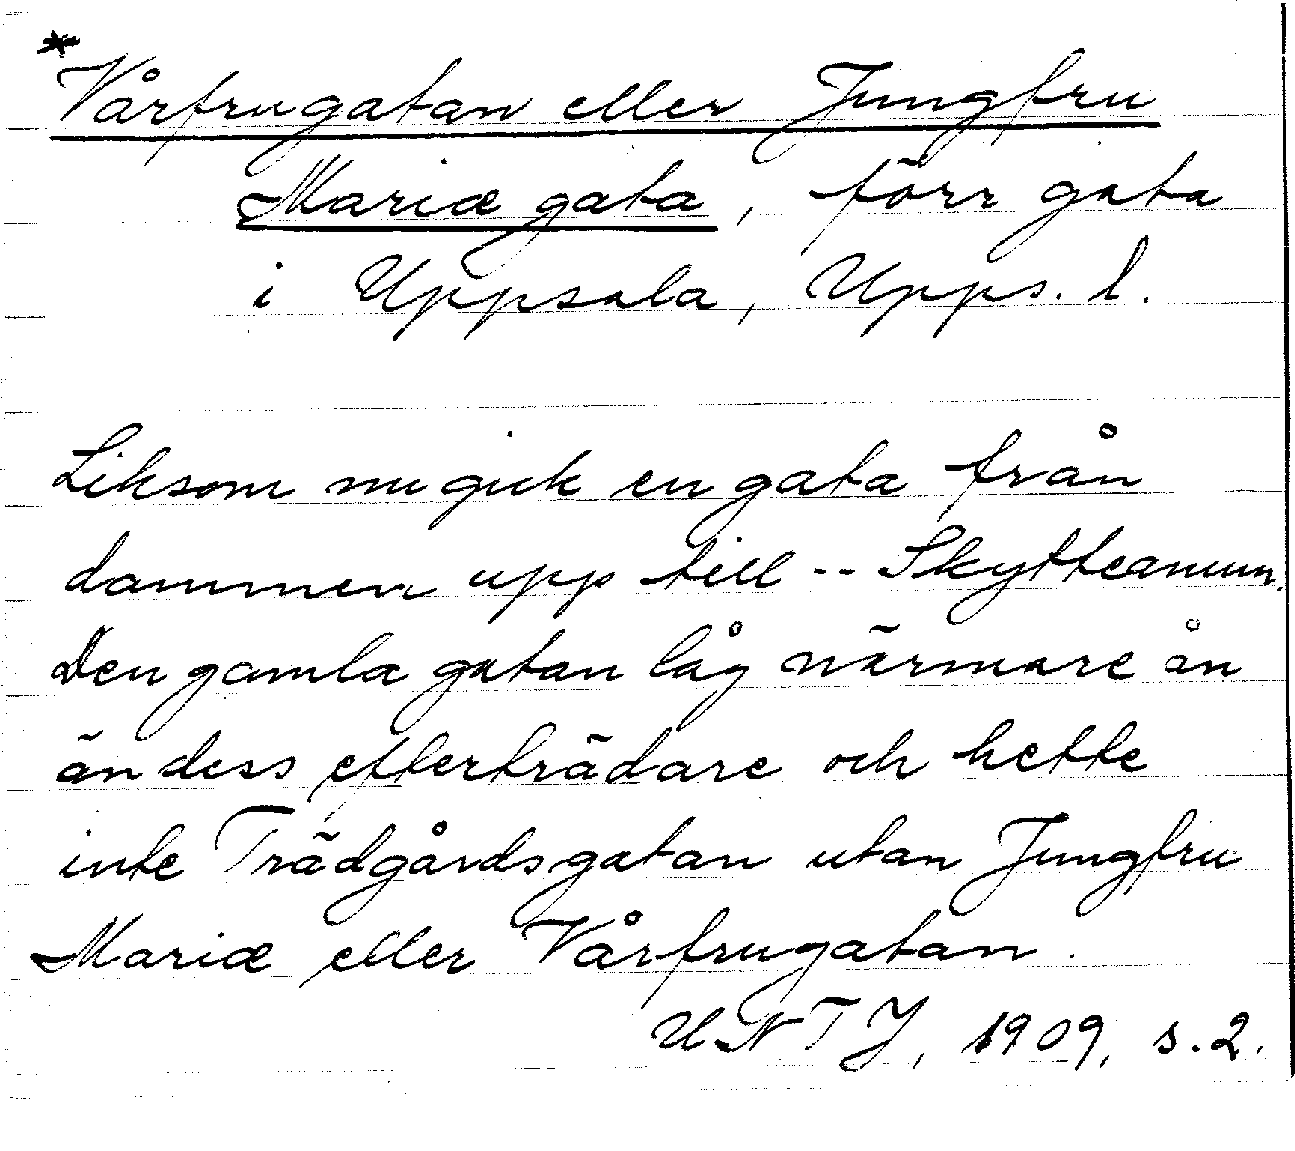 *
Vårfrugatan eller Jungfru
Mariæ gata, förr gata
i Uppsala, Upps. l.
Liksom nu gick en gata från
dammen upp till -- Skytteanum.
Den gamla gatan låg närmare ån
än dess efterträdare och hette
inte Trädgårdsgatan utan Jungfru
Mariæ eller Vårfrugatan.
UNTJ, 1909, s. 2.